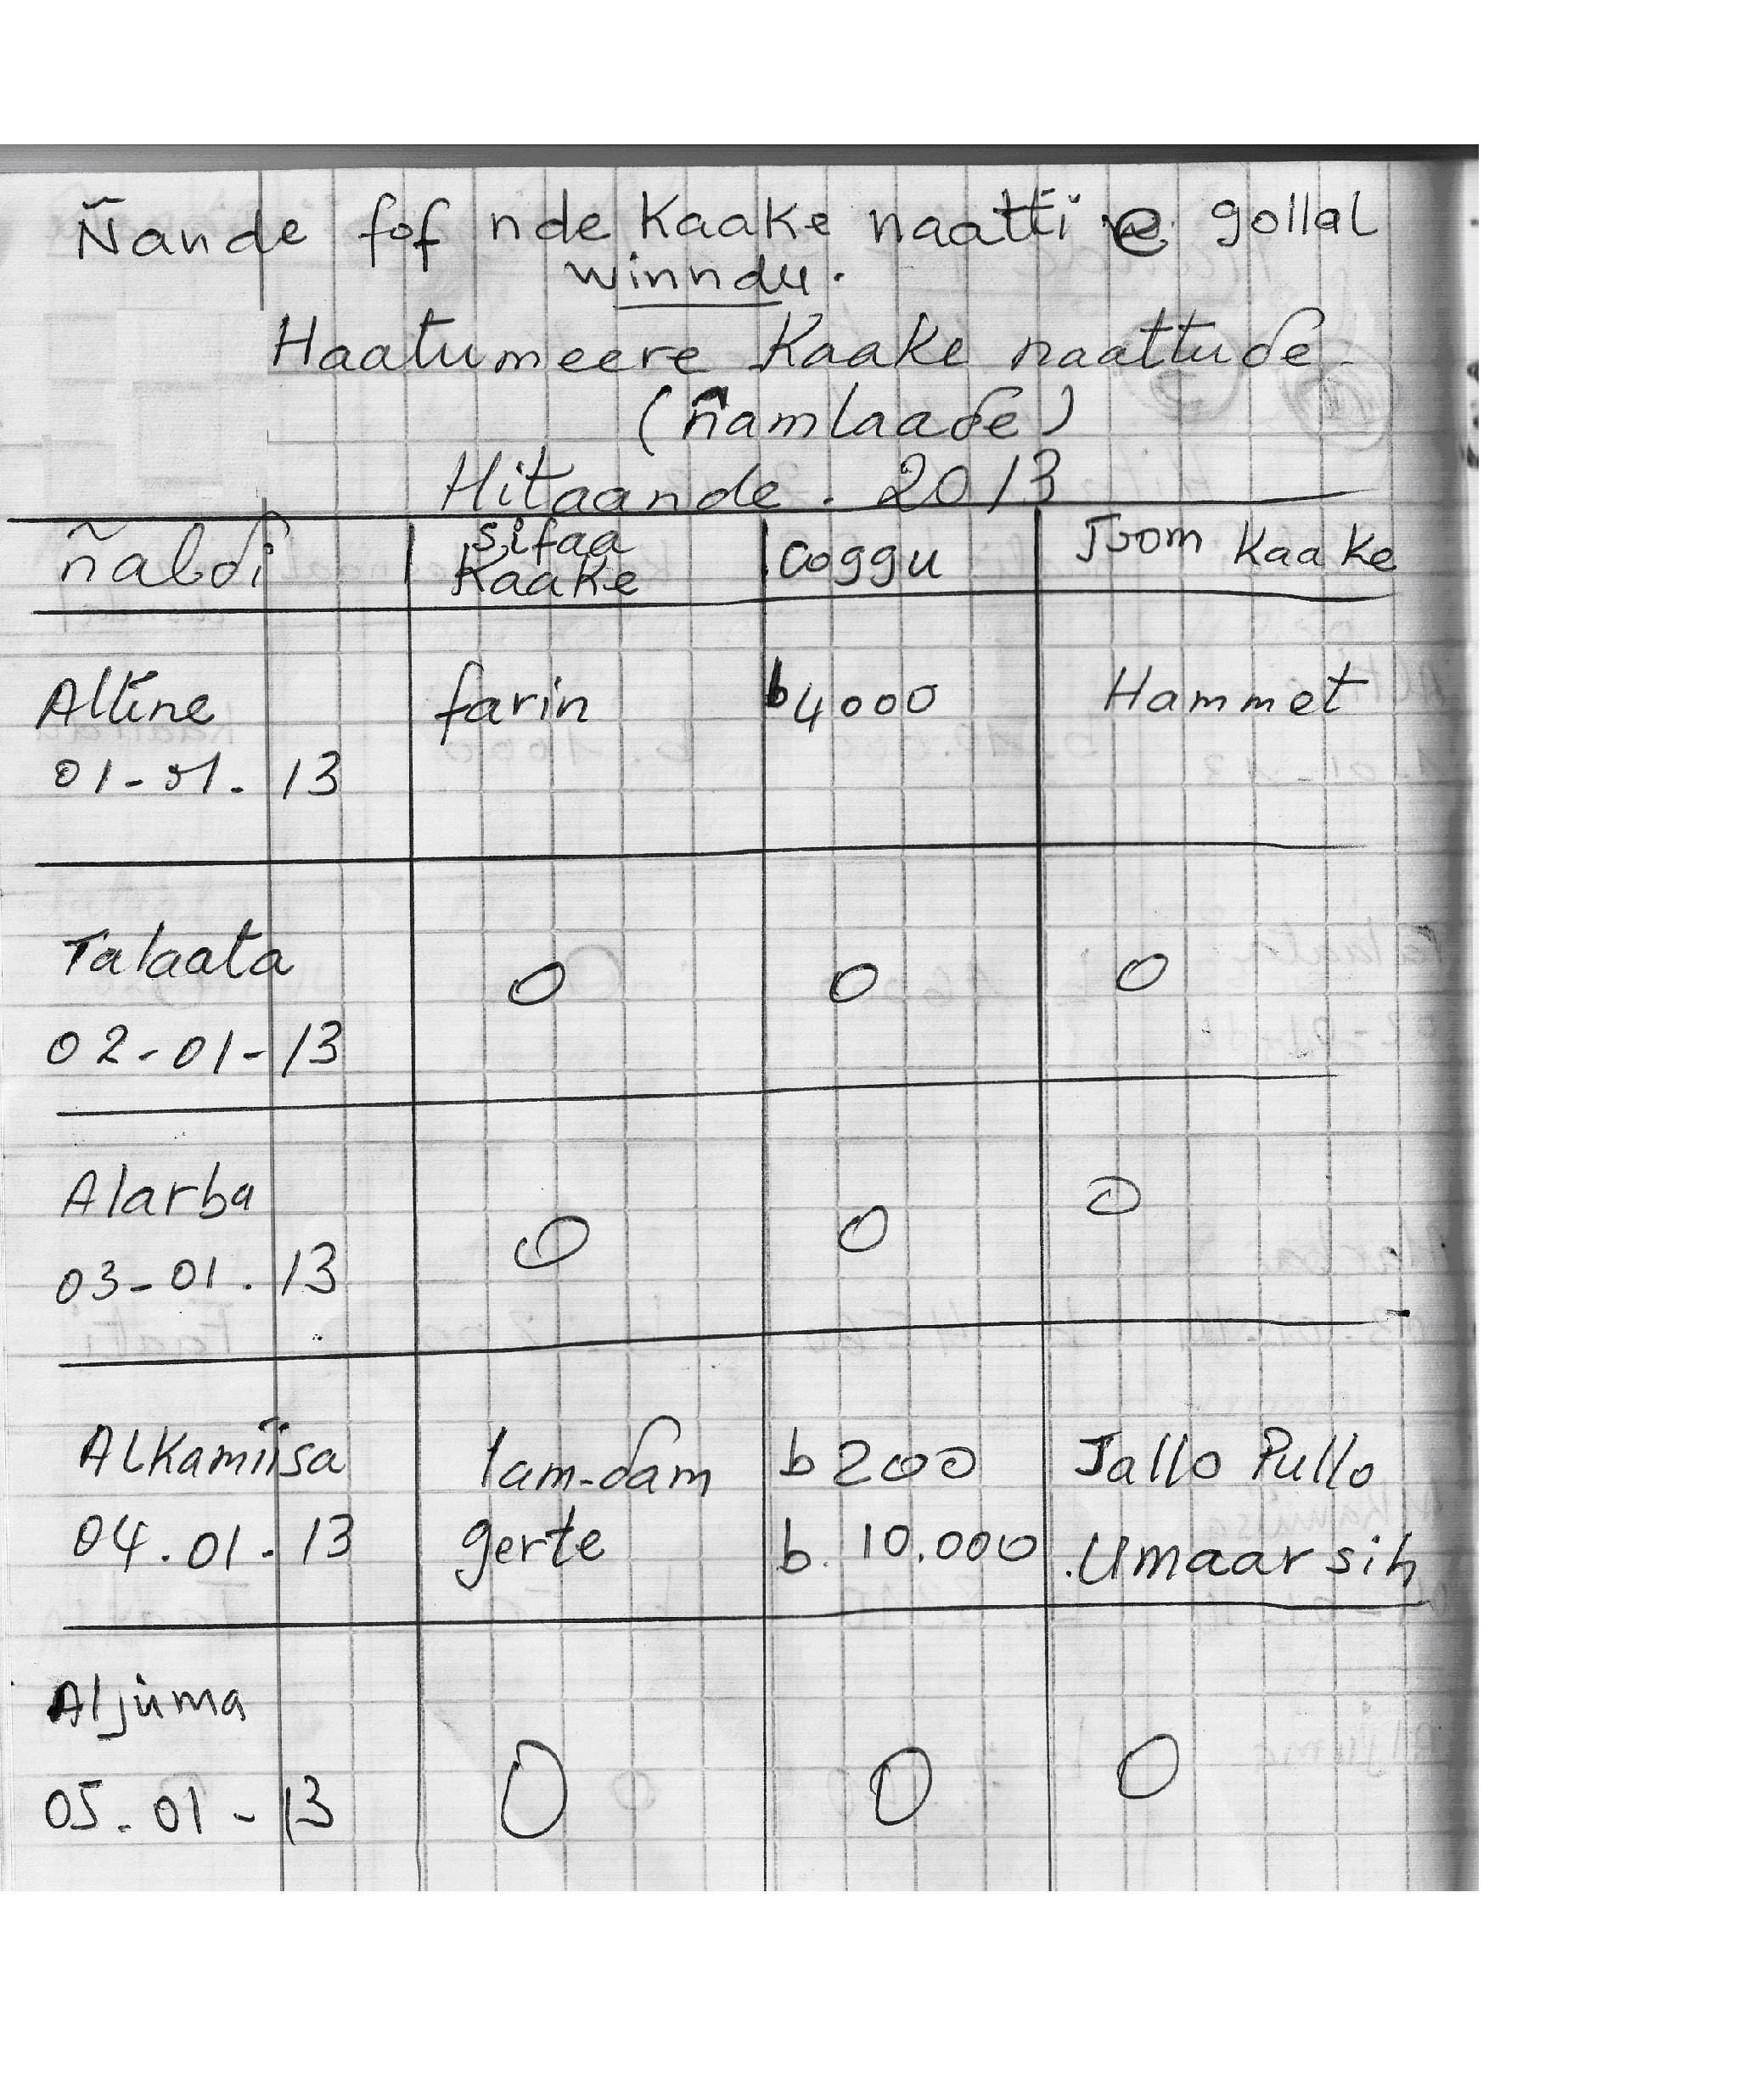 Ñande fof nde Kaake naatti e gollal
winndu.
Haatumeere Kaake naattuɗe
(ñamlaaɗe)
Hitaande. 2013
ñalɗi sifaa Kaake coggu Joom Kaake
Altine farin b4000 Hammet
01-01. 13
Talaata 0 0 0
02-01-13
Alarba 0 0 0
03-01.13
Alkamiisa lam-ɗam b 200 Jallo Pullo
04.01.13 gerte b. 10.000 .Umaar sih
Aljuma 0 0 0
05.01-13